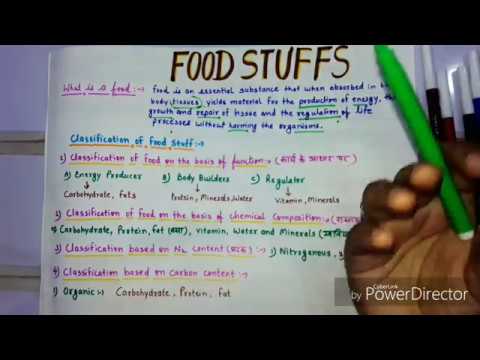 FOOD STUFFS
What is a food :→ food is an essential substance that when absorbed in
body tissues yields material for the production of energy, the
growth and repair of tissue and the regulation of life
processed without harming the organisms.
Classification of food stuff :→
1) Classification of food on the basis of function → (कार्य के आधार पर)
A) Energy Producer B) Body Builders C) Regulator
Carbohydrate, fats Protein, Minerals, Water Vitamin, Minerals
2) Classification of food on the basis of chemical Composition :→
→ Carbohydrate, Protein, fat (वसा), Vitamin, Water and Minerals
3) Classification based on N₂ Content :→ 1) Nitrogenous,
4) Classification based on Carbon content :→
1) Organic :→ Carbohydrate, Protein, fat
CyberLink
by PowerDirector